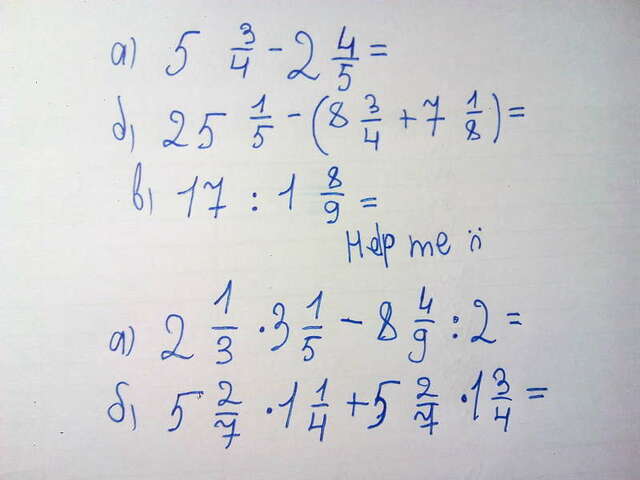 а) 5 3/4 - 2 4/5 =
б) 25 1/5 - (8 3/4 + 7 1/8) =
в) 17 : 1 8/9 =
а) 2 1/3 · 3 1/5 - 8 4/9 : 2 =
б) 5 2/7 · 1 1/4 + 5 2/7 · 1 3/4 =